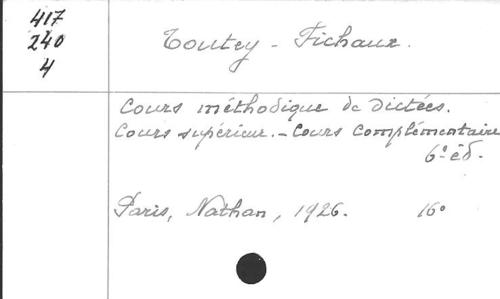 417
240
4
Toutey - Fichaux.
Cours méthodique de Dictées.
Cours supérieur. - Cours Complémentaire
6e éd.
Paris, Nathan, 1926. 16°